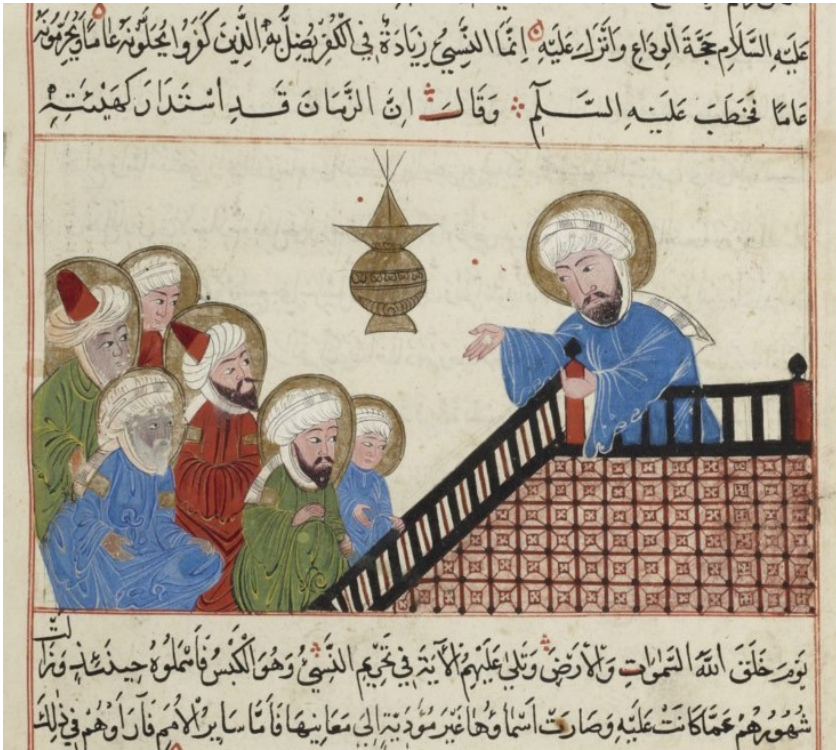 عليه السَّلَام حجَّة الوداع وانزل عليه انما النسيئ زيادةٌ في الكفر يضلّ به الذين كفروا يحلّونه عامًا ويحرّمونه
عامًا فخطب عليه السلٓم وقال انّ الزمان قد استدار كهيئته
يوم خلق الله السموات والارض وتلي عليهم الآية في تحريم النسئ وهو الكبس فاهملوه حينئذ وزالت
شهورهم عمّا كانت عليه وصارت اسماؤها غير مؤدّية الي معانيها فامّا ساير الامم فآراوهم في ذلك